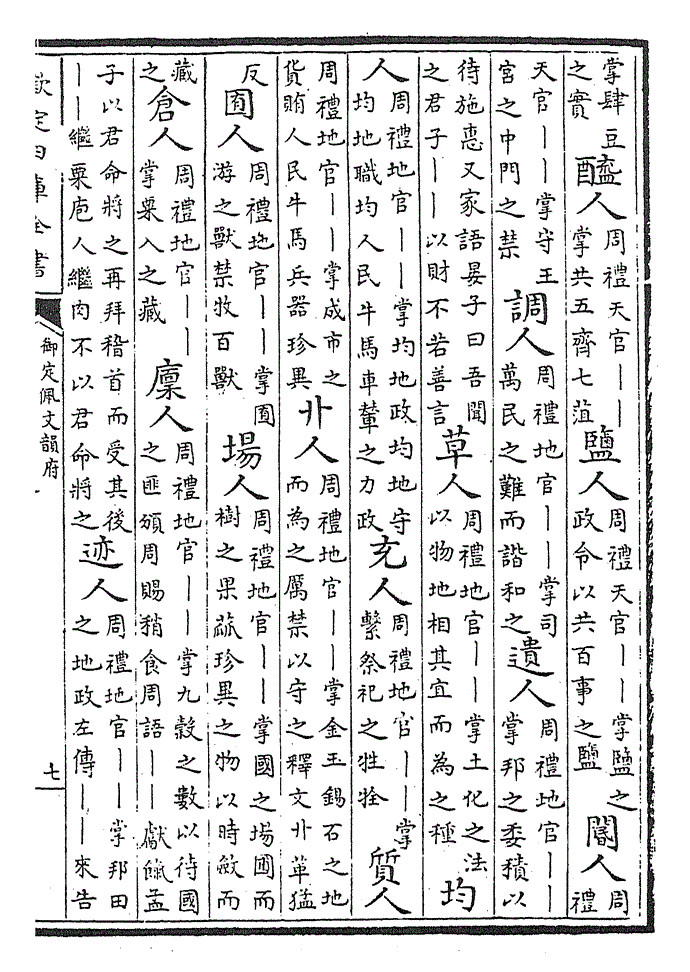 掌肆豆之實醢人周禮天官——掌共五齊七菹鹽人周禮天官——掌鹽之政令以共百事之鹽閽人周禮
天官——掌守王宮之中門之禁調人周禮地官——掌司萬民之難而諧和之遺人周禮地官——掌邦之委積以
待施恵又家語晏子曰吾聞之君子——以財不若善言草人周禮地官——掌土化之法以物地相其宜而為之種均
人周禮地官——掌均地政均地守均地職均人民牛馬車輦之力政充人周禮地官——掌繫祭祀之牲牷質人
周禮地官——掌成市之貨賄人民牛馬兵器珍異丱人周禮地官——掌金玉錫石之地而為之厲禁以守之釋文丱革猛
反囿人周禮地官——掌囿游之獸禁牧百獸場人周禮地官——掌國之場圃而樹之果蓏珍異之物以時斂而
藏之倉人周禮地官——掌粟入之藏廩人周禮地官——掌九穀之數以待國之匪頒周賜稍食周語——獻餼孟
子以君命將之再拜稽首而受其後——繼粟庖人繼肉不以君命將之迹人周禮地官——掌邦田之地政左傳——來告
欽定四庫全書
御定佩文韻府
七